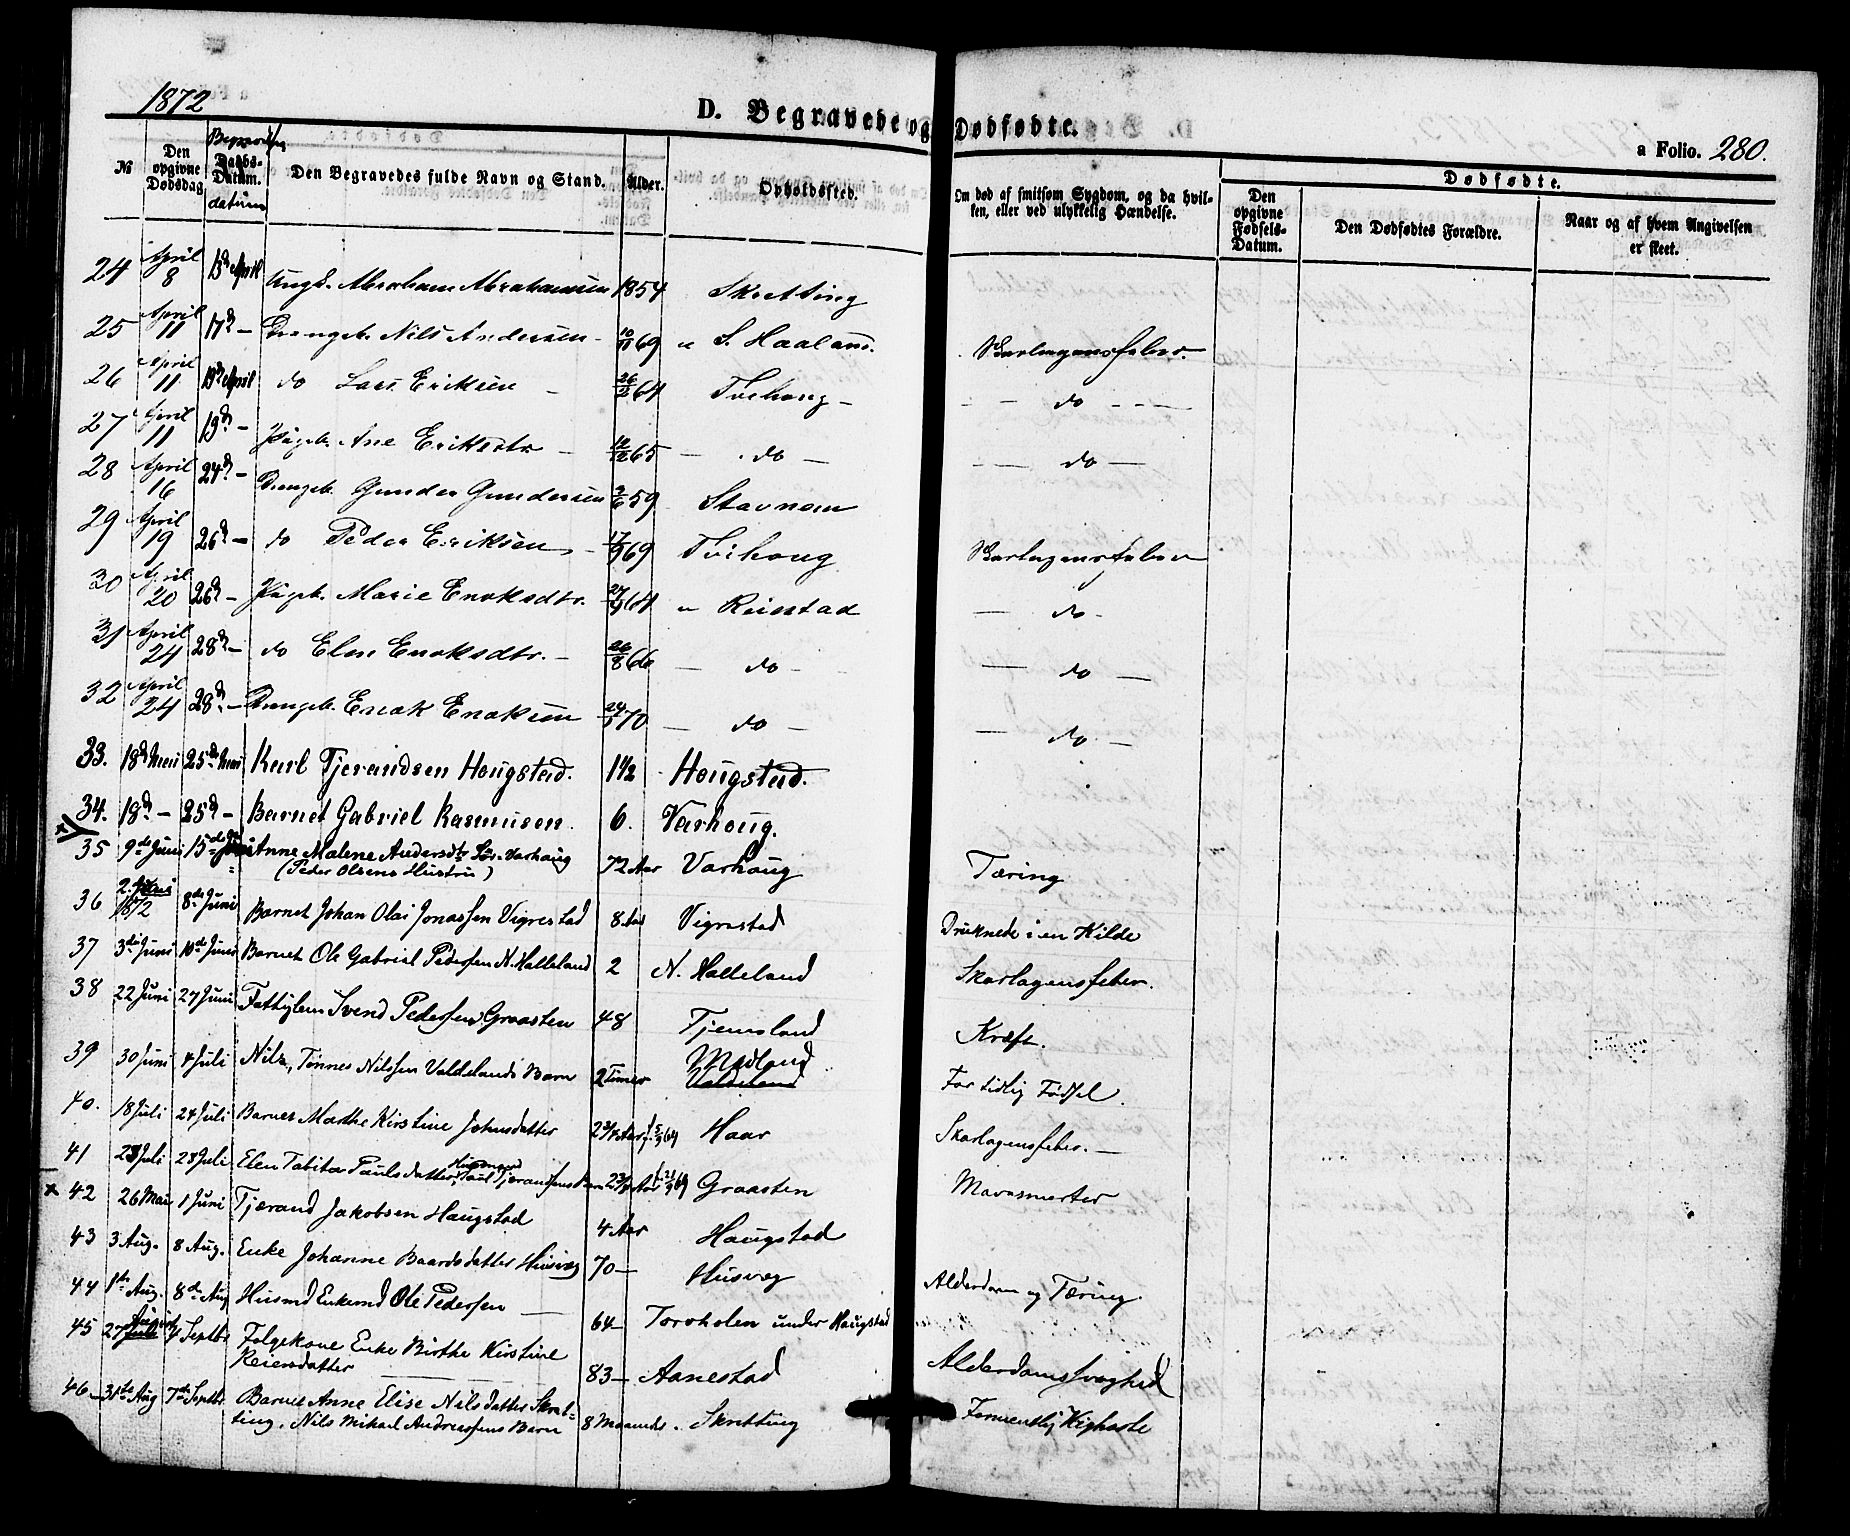 1872
D. Begravede og Dødfødte.
a Folio. 280.
№ Den opgivne Dødsdag Daabs-Datum. datum Den Begravedes fulde Navn og Stand. Alder. Opholdssted. Om død af smitsom Sygdom, og da hvilken, eller ved ulykkelig Hændelse. Dødfødte.
Den opgivne Fødsels-Datum. Den Dødfødtes Forældre. Naar og af hvem Angivelsen er skeet.
24 April 8 13d April Ungk. Abraham Abrahamsen 1854 Skretting
25 April 11 17d – Drengeb. Nils Andersen 10/11 69 S. Haaland. Skarlagensfeber.
26 April 11 19d April do Lars Eriksen 26/2 64 Tvihoug – do –
27 April 11 19d – Pigeb. Ane Eriksdtr 12/12 65 – do – – do –
28 April 16 24d – Drengeb. Gunder Gundersen 59 Stavnem
29 April 19 26d – do Peder Eriksen 17/9 69 Tvihoug Skarlagensfeber
30 April 20 26d – Pigeb. Marie Enoksdtr. 64 Reiestad – do –
31 April 24 28d – do Elen Enoksdtr. – 26/8 66 – do – – do –
32 April 24 28d – Drengeb. Enok Enoksen 70 – do – – do –
33. 18d Mai 25de Mai Karl Tjerandsen Hougstad. 1 1/2 Hougstad.
34. 18d – 25d – Barnet Gabriel Rasmusen. 6. Varhoug.
35 9de Juni 15de Juni Anne Malene Andersdtr Sør-Varhaug 72 Aar Varhoug Tæring
(Peder Olsens Hustru)
36 2. Juni 1872 8de Juni Barnet Johan Olai Jonassen Vigrestad 8 Aar Vigrestad Druknede i en Kilde
37 3die Juni 10de Juni Barnet Ole Gabriel Pedersen N. Halleland 2 N. Halleland Skarlagensfeber.
38 22 Juni 27 Juni Fattiglem Svend Pedersen Graasten 48 Tjemsland Kræft.
39 30 Juni 4 Juli Nils, Tønnes Nilssen Valdelands Barn 2 Timer Madland Valdeland For tidlig Fødsel.
40. 18 Juli 24 Juli Barnet Marthe Kirstine Johnsdatter Aar Haar Skarlagensfeber. –
41 23 Juli 28 Juli Elen Tabita Paulsdatter, Husmand Paul Tjerandsens Barn Aar Graasten Mavesmerter
x 42 26 Mai 1 Juni Tjærand Jakobsen Haugstad 4 Aar Haugstad
43 3 Aug. 8 Aug. Enke Johanne Baardsdatter Husveg 70 – Husveg Alderdom og Tæring.
44 1ste Aug. 8de Aug Husmd Enkemd Ole Pedersen – 64 – Torvholen under Haugstad
45 27 Juli August 4 Septbr Folgekone Enke Birthe Kirstine 83 – Aanestad Alderdomssvaghed
Reiersdatter
46 – 31te Aug 7de Septbr. Barnet Anne Elise Nilsdatter Skret-
ting, Nils Mikael Andreassens Barn 8 Maaneder. Skretting Formentlig Kighoste